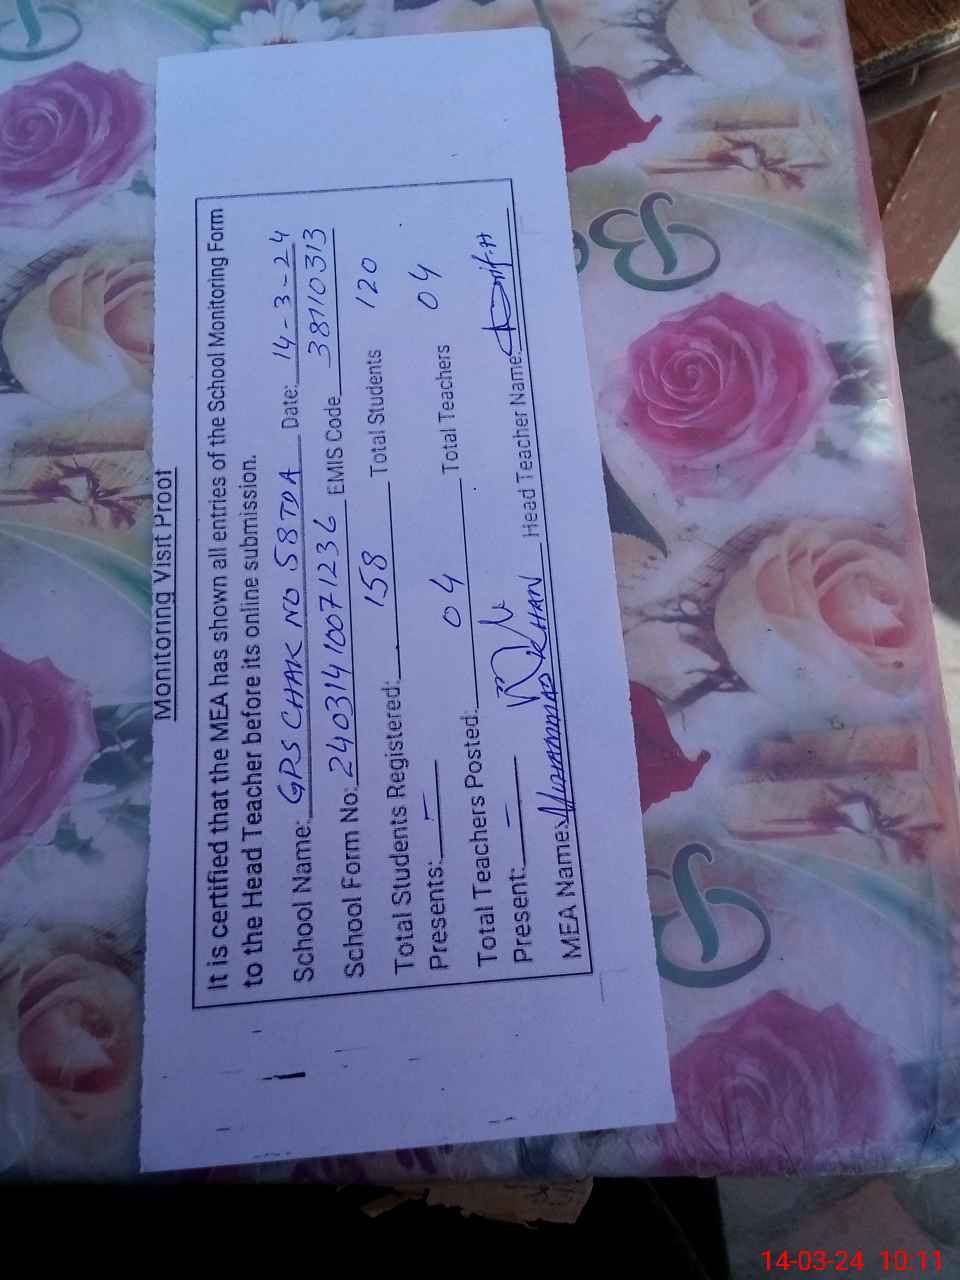 Monitoring Visit Proof
It is certified that the MEA has shown all entries of the School Monitoring Form
to the Head Teacher before its online submission.
School Name: GPS CHAK NO 58TDA Date: 14-3-24
School Form No: 24031410071236 EMIS Code 38110313
Total Students Registered: 158 Total Students 120
Presents: -
Total Teachers Posted: 04 Total Teachers 04
Present: -
MEA Name: Muhammad KHAN Head Teacher Name:
14-03-24 10:11